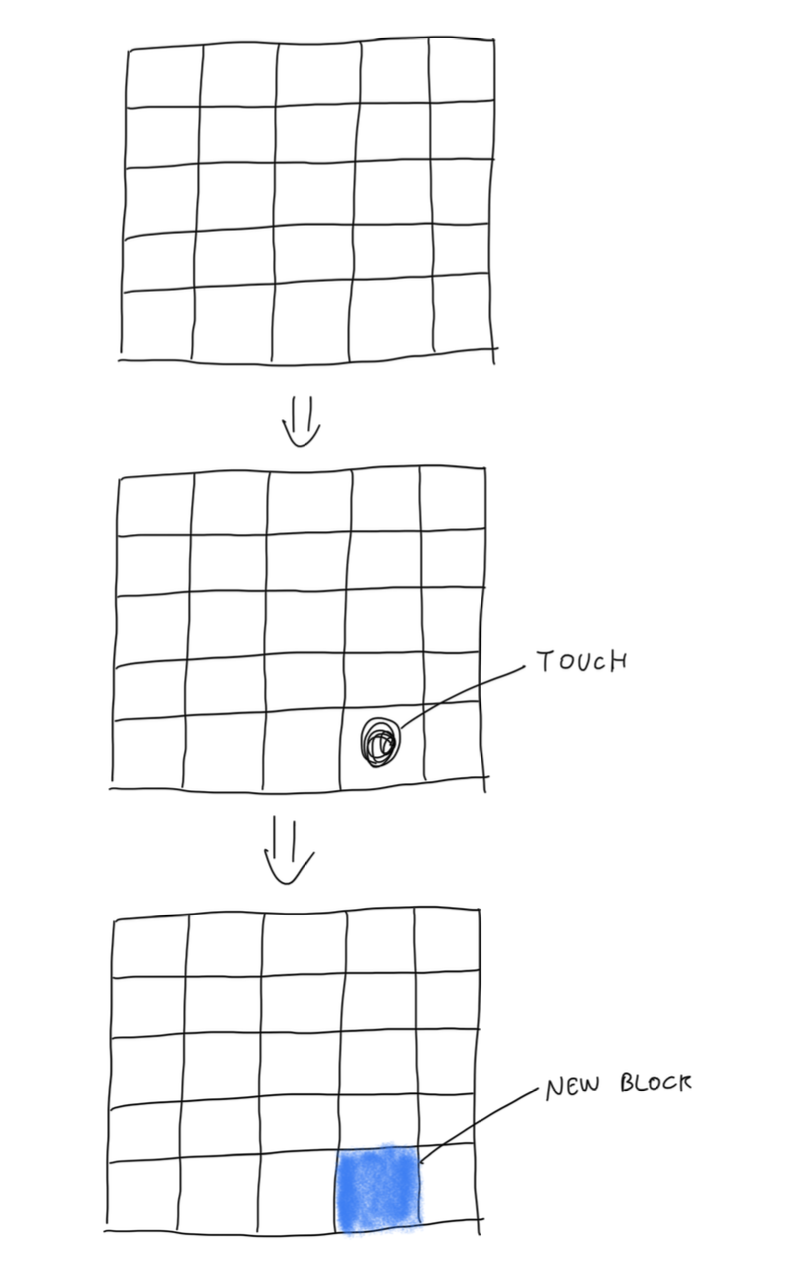 TOUCH
NEW BLOCK